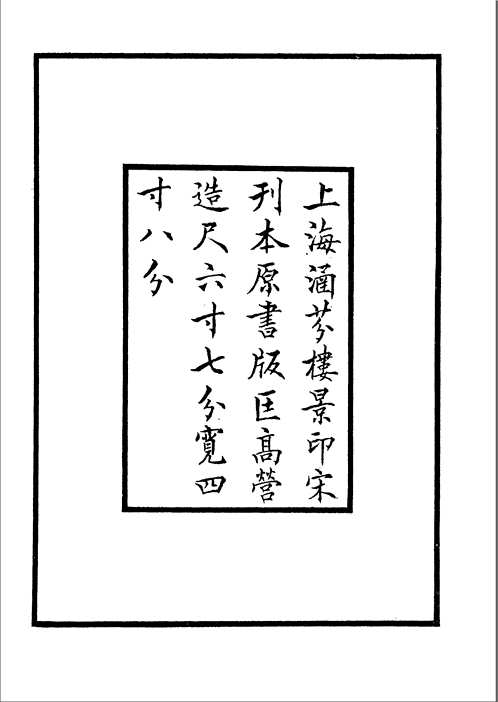 上海涵芬樓景印宋
刊本原書版匡髙營
造尺六寸七分寬四
寸八分